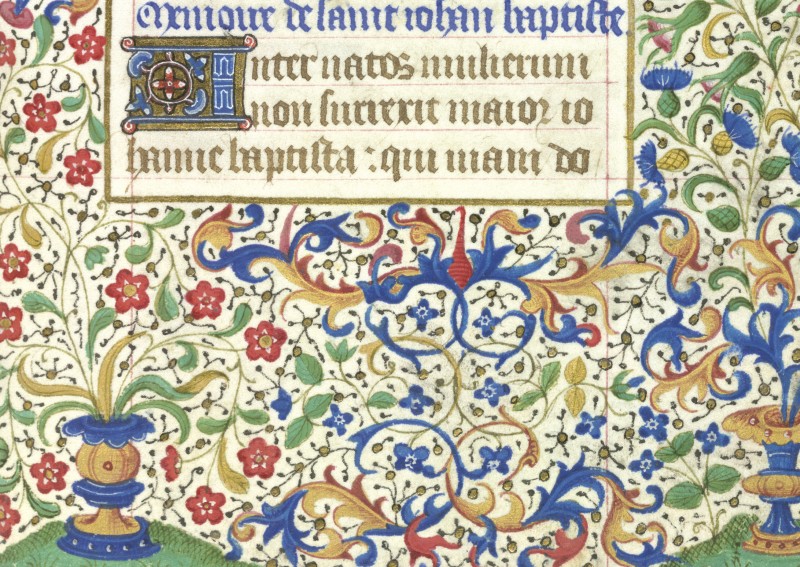 Memoire de saint iohan baptiste
Inter natos mulierum
non surrexit maior io
hanne baptista : qui uiam do